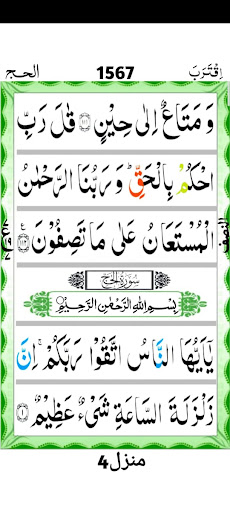 الحج 1567 اِقْتَرَبَ
وَ مَتَاعٌ اِلٰى حِيْنٍ ۝۱۱۱ قٰلَ رَبِّ
احْكُمْ بِالْحَقِّ ؕ وَ رَبُّنَا الرَّحْمٰنُ
الْمُسْتَعَانُ عَلٰى مَا تَصِفُوْنَ ۝۱۱۲ ع
سورة الحج
بِسْمِ اللّٰهِ الرَّحْمٰنِ الرَّحِيْمِ
يٰۤاَيُّهَا النَّاسُ اتَّقُوْا رَبَّكُمْ ۚ اِنَّ
زَلْزَلَةَ السَّاعَةِ شَيْءٌ عَظِيْمٌ ۝۱
منزل4